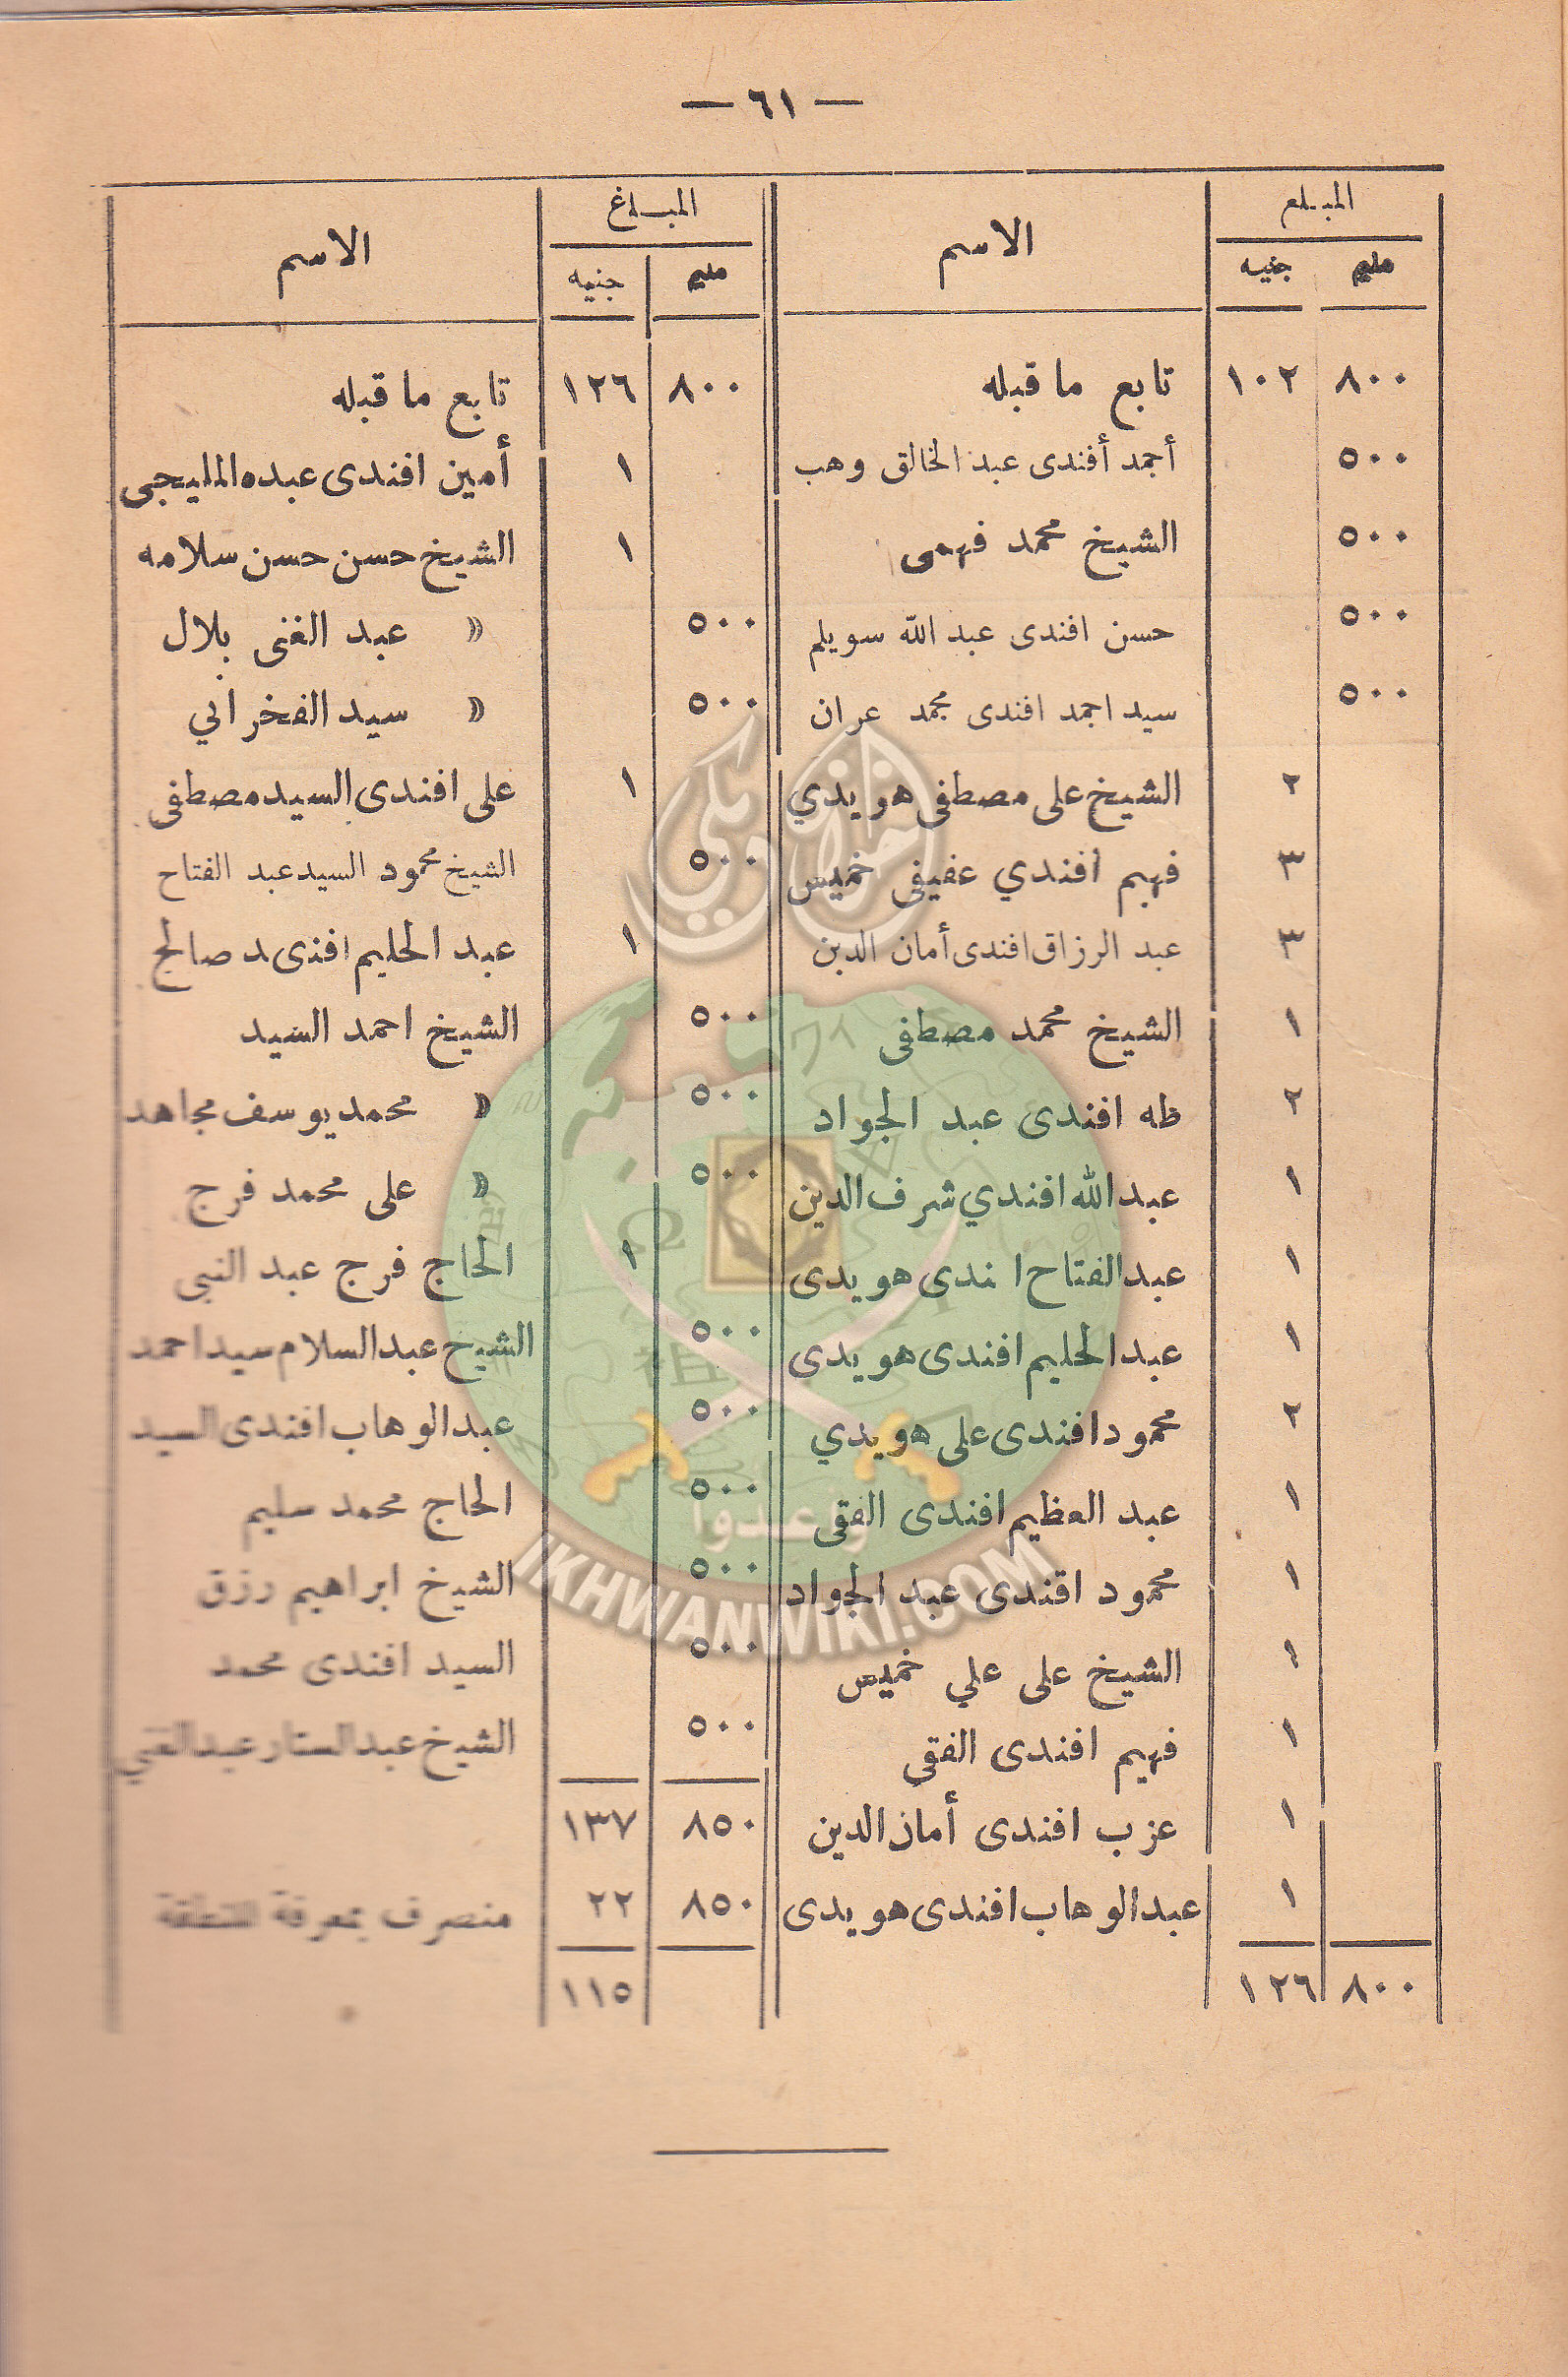 — ٦١ —
المبلع الاسم
مليم جنيه
٨٠٠ ١٠٢ تابع ما قبله
٥٠٠ أحمد أفندى عبد الخالق وهب
٥٠٠ الشيخ محمد فهمى
٥٠٠ حسن افندى عبد الله سويلم
٥٠٠ سيد احمد افندى محمد عران
٢ الشيخ على مصطفى هويدي
٣ فهيم افندي عفيفى خميس
٣ عبد الرزاق افندى أمان الدين
١ الشيخ محمد مصطفى
٢ طه افندى عبد الجواد
١ عبد الله افندي شرف الدين
١ عبد الفتاح ا ندى هويدى
١ عبد الحليم افندى هويدى
٢ محمود افندى على هويدي
١ عبد العظيم افندى الفقى
١ محمود اقندى عبد الجواد
١ الشيخ على علي خميس
١ فهيم افندى الفقي
١ عزب افندى أمان الدين
١ عبد الوهاب افندى هويدى
٨٠٠ ١٢٦
المبلاغ الاسم
مليم جنيه
٨٠٠ ١٢٦ تابع ما قبله
١ أمين افندى عبده المليجى
١ الشيخ حسن حسن سلامه
٥٠٠ » عبد الغنى بلال
٥٠٠ » سيد الفخراني
١ على افندى السيد مصطفى
٥٠٠ الشيخ محمود السيد عبد الفتاح
١ عبد الحليم افندى د صالح
٥٠٠ الشيخ احمد السيد
٥٠٠ » محمد يوسف مجاهد
٥٠٠ » على محمد فرج
١ الحاج فرج عبد النبى
٥٠٠ الشيخ عبد السلام سيد احمد
٥٠٠ عبد الوهاب افندى السيد
٥٠٠ الحاج محمد سليم
٥٠٠ الشيخ ابراهيم رزق
٥٠٠ السيد افندى محمد
٥٠٠ الشيخ عبد الستار عبد الغني
٨٥٠ ١٣٧
٨٥٠ ٢٢ منصرف بمعرفة المنطقة
١١٥
إخوان ويكي
وأعدوا
IKHWANWIKI.COM